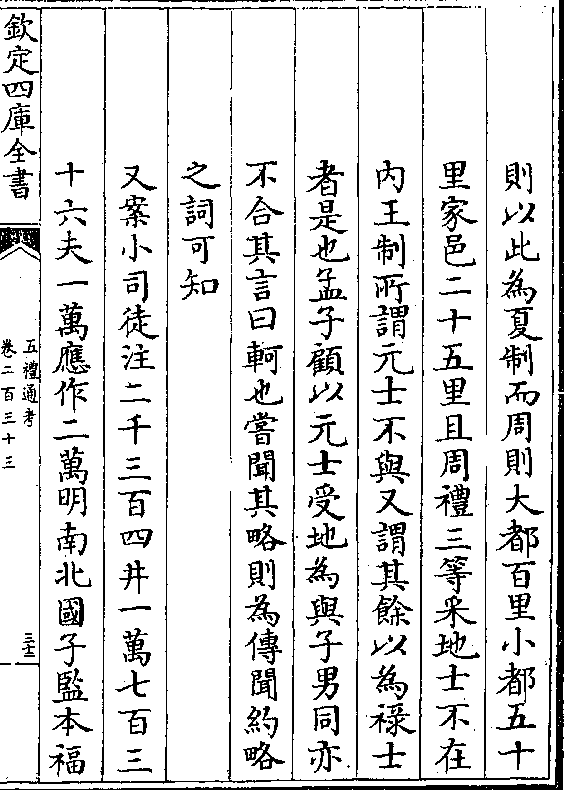 則以此為夏制而周則大都百里小都五十
里家邑二十五里且周禮三等采地士不在
内王制所謂元士不與又謂其餘以為祿士
者是也孟子顧以元士受地為與子男同亦
不合其言曰軻也嘗聞其略則為傳聞約略
之詞可知
又案小司徒注二千三百四井一萬七百三
十六夫一萬應作二萬明南北國子監本福
欽定四庫全書
五禮通考
卷二百三十三